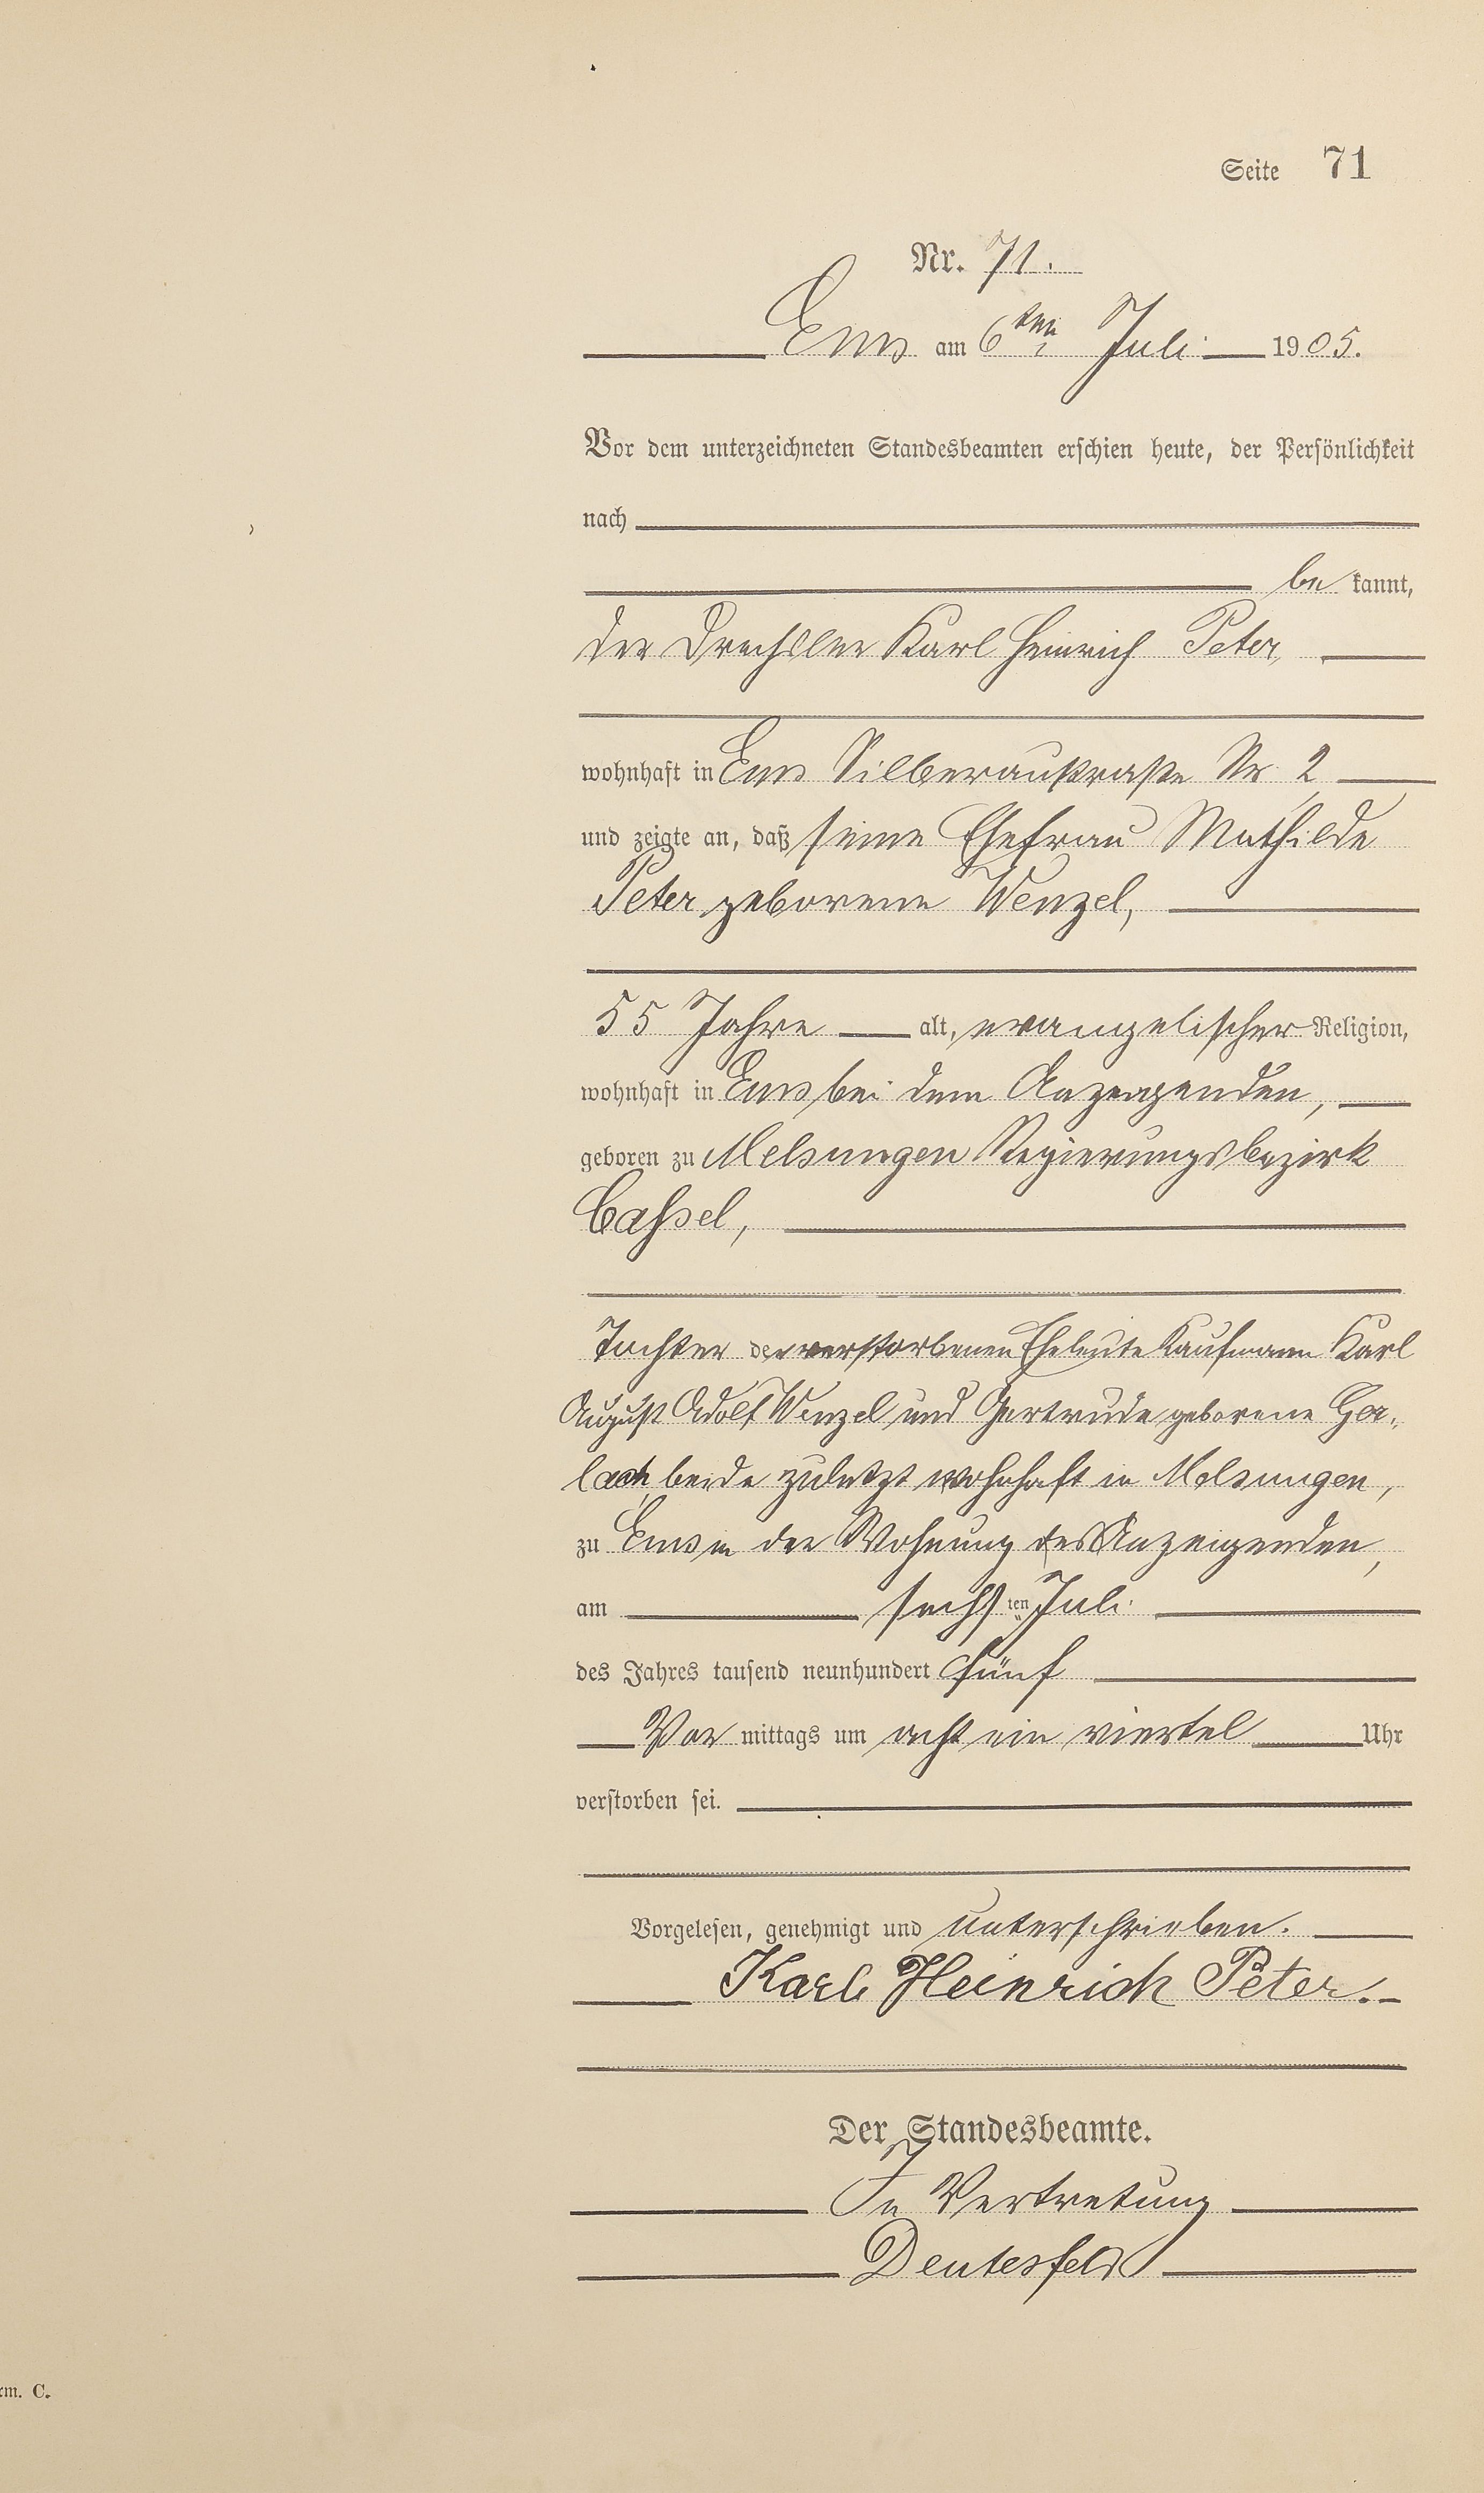 Seite 71
Nr. 71.
Ems am 6ten Juli 1905.
Vor dem unterzeichneten Standesbeamten erschien heute, der Persönlichkeit
nach
be kannt,
der Drechsler Karl Heinrich Peter,
wohnhaft in Ems Silberaustraße Nr 2
und zeigte an, daß seine Ehefrau Mathilde
Peter geborene Wenzel,
55 Jahre alt, evangelischer Religion,
wohnhaft in Ems bei dem Anzeigenden,
geboren zu Melsungen Regierungsbezirk
Cassel,
Tochter der verstorbenen Eheleute Kaufmann Karl
August Adolf Wenzel und Gertrude geborene Ger-
lach, beide zuletzt wohnhaft in Melsungen,
zu Ems in der Wohnung des Anzeigenden,
am sechsten Juli
des Jahres tausend neunhundert fünf
Vor mittags um acht ein viertel Uhr
verstorben sei.
Vorgelesen, genehmigt und unterschrieben.
Karl Heinrich Peter.
Der Standesbeamte.
In Vertretung
Deutesfeld
rm. C.